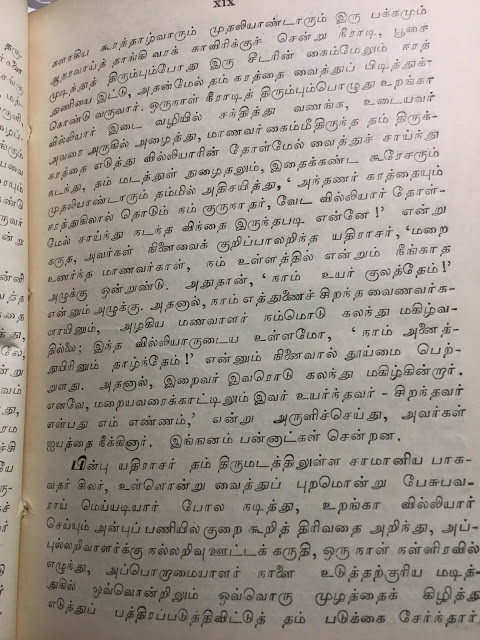 xix
களாகிய கூரத்தாழ்வாரும் முதலியாண்டாரும் இரு பக்கமும்
ஆதரவாய்த் தாங்கி வரக் காவிரிக்குச் சென்று நீராடி, பூசை
முடித்துத் திரும்பும்போது இரு சீடரின் கைம்மேலும் ஈரத்
துணியை இட்டு, அதன்மேல் தம் கரத்தை வைத்துப் பிடித்துக்-
கொண்டு வருவார். ஒருநாள் நீராடித் திரும்பும்பொழுது உறங்கா
வில்லியார் இடை வழியில் சந்தித்து வணங்க, உடையவர்
அவரை அருகில் அழைத்து, மாணவர் கைம்மீதிருந்த தம் திருக்-
கரத்தை எடுத்து வில்லியாரின் தோள்மேல் வைத்துச் சாய்ந்து
நடந்து, தம் மடத்துள் நுழைதலும், இதைக்கண்ட கூரேசரும்
முதலியாண்டாரும் தம்மில் அதிசயித்து, ‘அந்தணர் கரத்தையும்
ஈரத்துகிலால் தொடும் நம் குருநாதர், வேட வில்லியார் தோள்-
மேல் சாய்ந்து நடந்த விந்தை இருந்தபடி என்னே!’ என்று
கருத, அவர்கள் நினைவைக் குறிப்பாலறிந்த யதிராசர், ‘மறை
உணர்ந்த மாணவர்காள், நம் உள்ளத்தில் என்றும் நீங்காத
அழுக்கு ஒன்றுண்டு. அதுதான், ‘நாம் உயர் குலத்தேம்!’
என்னும் அழுக்கு. அதனால், நாம் எத்துணைச் சிறந்த வைணவர்க-
ளாயினும், அழகிய மணவாளர் நம்மொடு கலந்து மகிழ்வ-
தில்லை; இந்த வில்லியாருடைய உள்ளமோ, ‘நாம் அனைத்-
துயிரினும் தாழ்ந்தேம்!’ என்னும் நினைவால் தூய்மை பெற்-
றுளது. அதனால், இறைவர் இவரொடு கலந்து மகிழ்கின்றார்.
எனவே, மறையவரைக்காட்டிலும் இவர் உயர்ந்தவர் - சிறந்தவர்
என்பது எம் எண்ணம்,’ என்று அருளிச்செய்து, அவர்கள்
ஐயத்தை நீக்கினார். இங்ஙனம் பன்னாட்கள் சென்றன.
பின்பு யதிராசர் தம் திருமடத்திலுள்ள சாமானிய பாக-
வதர் சிலர், உள்ளொன்று வைத்துப் புறமொன்று பேசுபவ-
ராய் மெய்யடியார் போல நடித்து, உறங்கா வில்லியார்
செய்யும் அன்புப் பணியில் குறை கூறித் திரிவதை அறிந்து, அப்-
புல்லறிவாளர்க்கு நல்லறிவு ஊட்டக் கருதி, ஒரு நாள் நள்ளிரவில்
எழுந்து, அப்பொறாமையாளர் நாளை உடுத்தற்குரிய மடித்-
துகில் ஒவ்வொன்றிலும் ஒவ்வொரு முழத்தைக் கிழித்து
எடுத்துப் பத்திரப்படுத்திவிட்டுத் தம் படுக்கை சேர்ந்தார்.